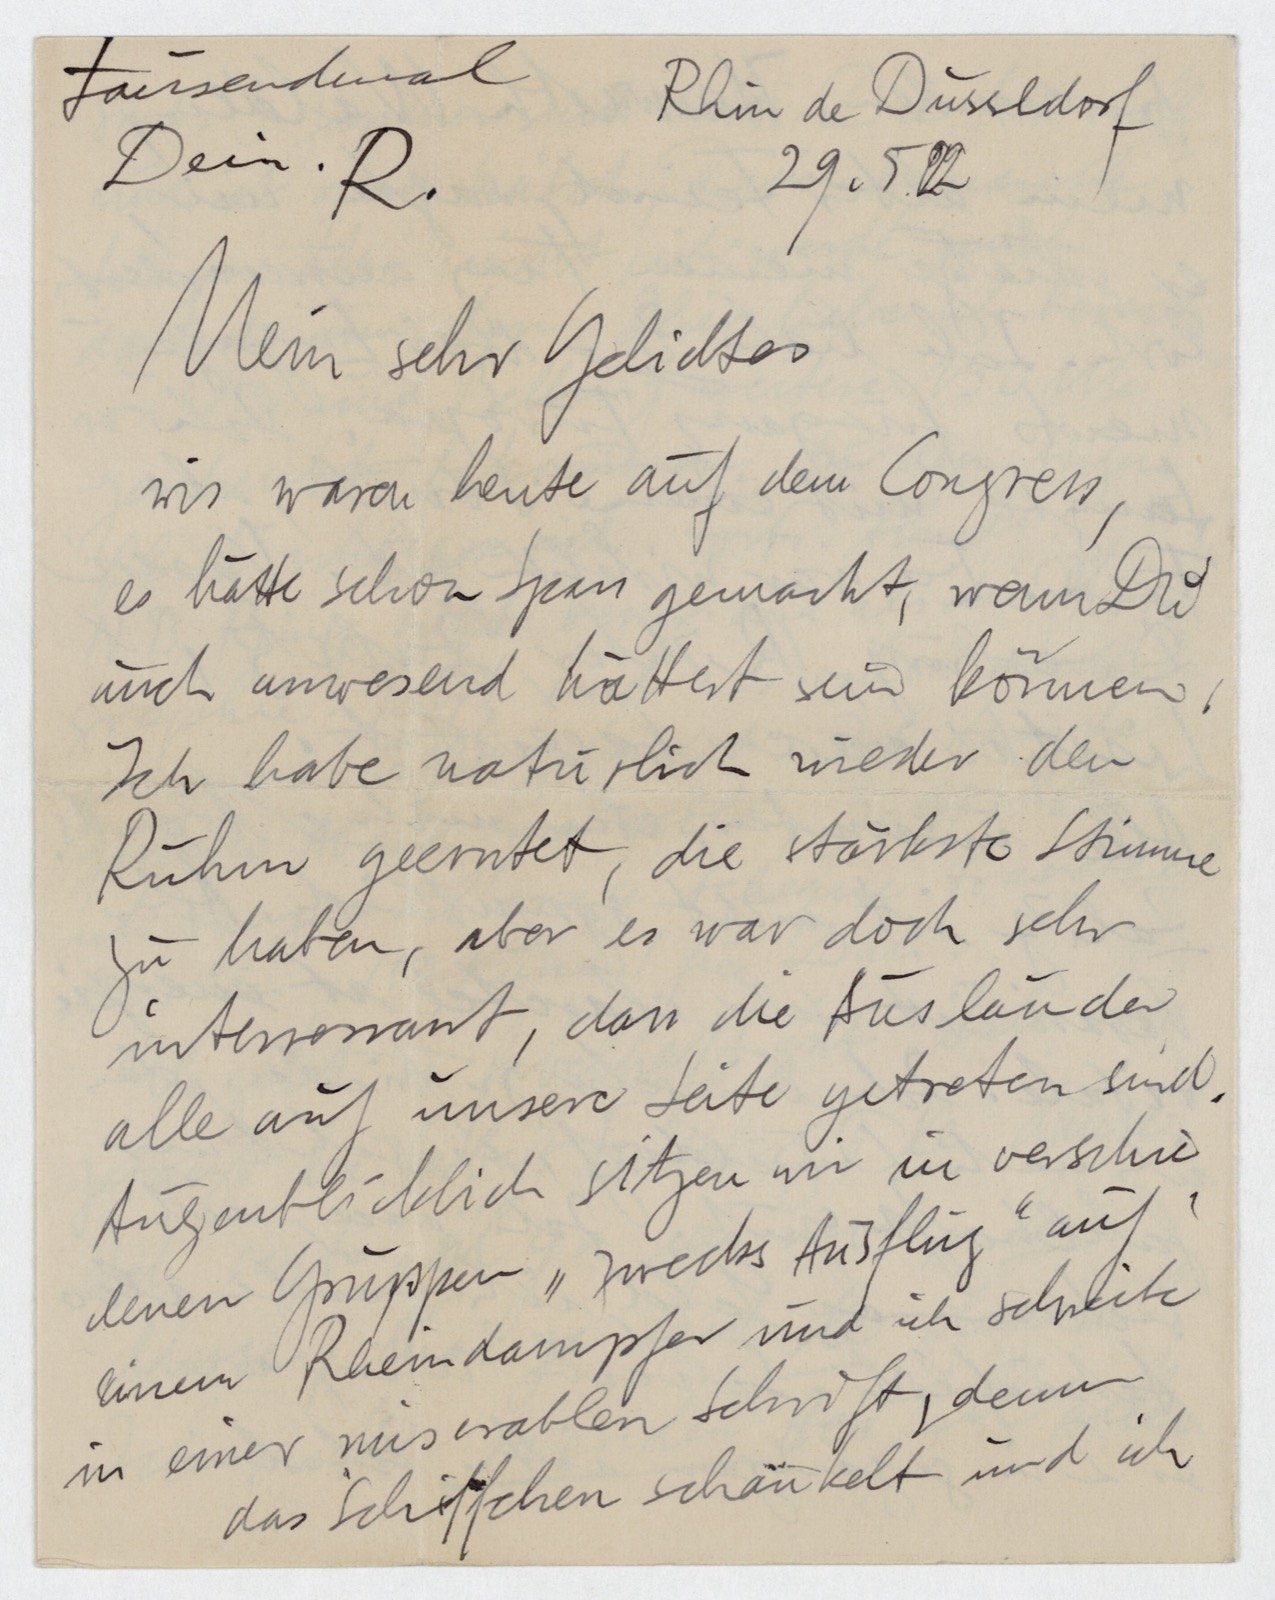 tausendmal
Dein. R.
Rhin de Düsseldorf
29.5.22
Mein sehr Geliebtes
wir waren heute auf dem Congress,
es hätte schon Spass gemacht, wenn Du
auch anwesend hättest sein können.
Ich habe natürlich wieder den
Ruhm geerntet, die stärkste Stimme
zu haben, aber es war doch sehr
interressant, dass die Ausländer
alle auf unsere Seite getreten sind.
Augenblicklich sitzen wir in verschie
denen Gruppen „zwecks Ausflug“ auf
einem Rheindampfer und ich schreibe
in einer miserablen Schrift, denn
das Schiffchen schaukelt und ich